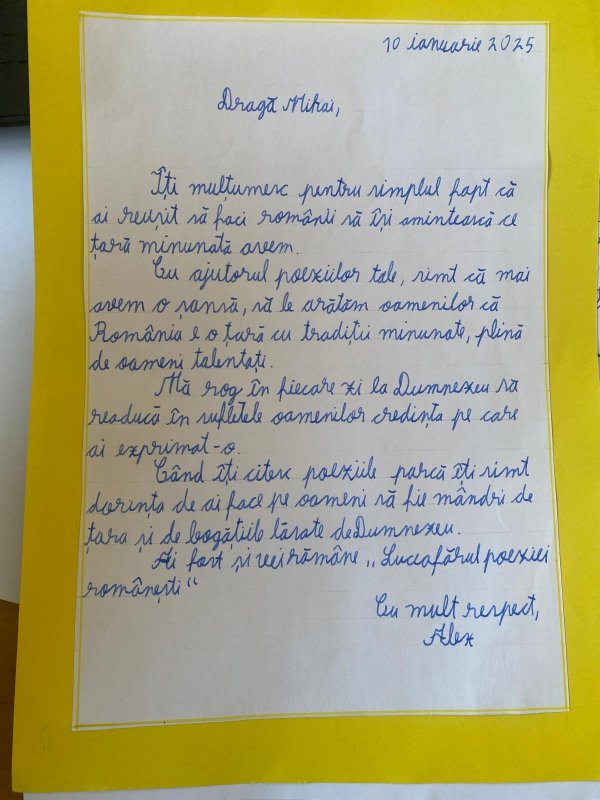 10 ianuarie 2025
Dragă Mihai,
Îți mulțumesc pentru simplul fapt că
ai reușit să faci românii să își amintească ce
țară minunată avem.
Cu ajutorul poeziilor tale, simt că mai
avem o șansă, să le arătăm oamenilor că
România e o țară cu tradiții minunate, plină
de oameni talentați.
Mă rog în fiecare zi la Dumnezeu să
readucă în sufletele oamenilor credința pe care
ai exprimat-o.
Când îți citesc poeziile parcă îți simt
dorința de ai face pe oameni să fie mândri de
țara și de bogățiile lăsate de Dumnezeu.
Ai fost și vei rămâne „Luceafărul poeziei
românești“
Cu mult respect,
Alex